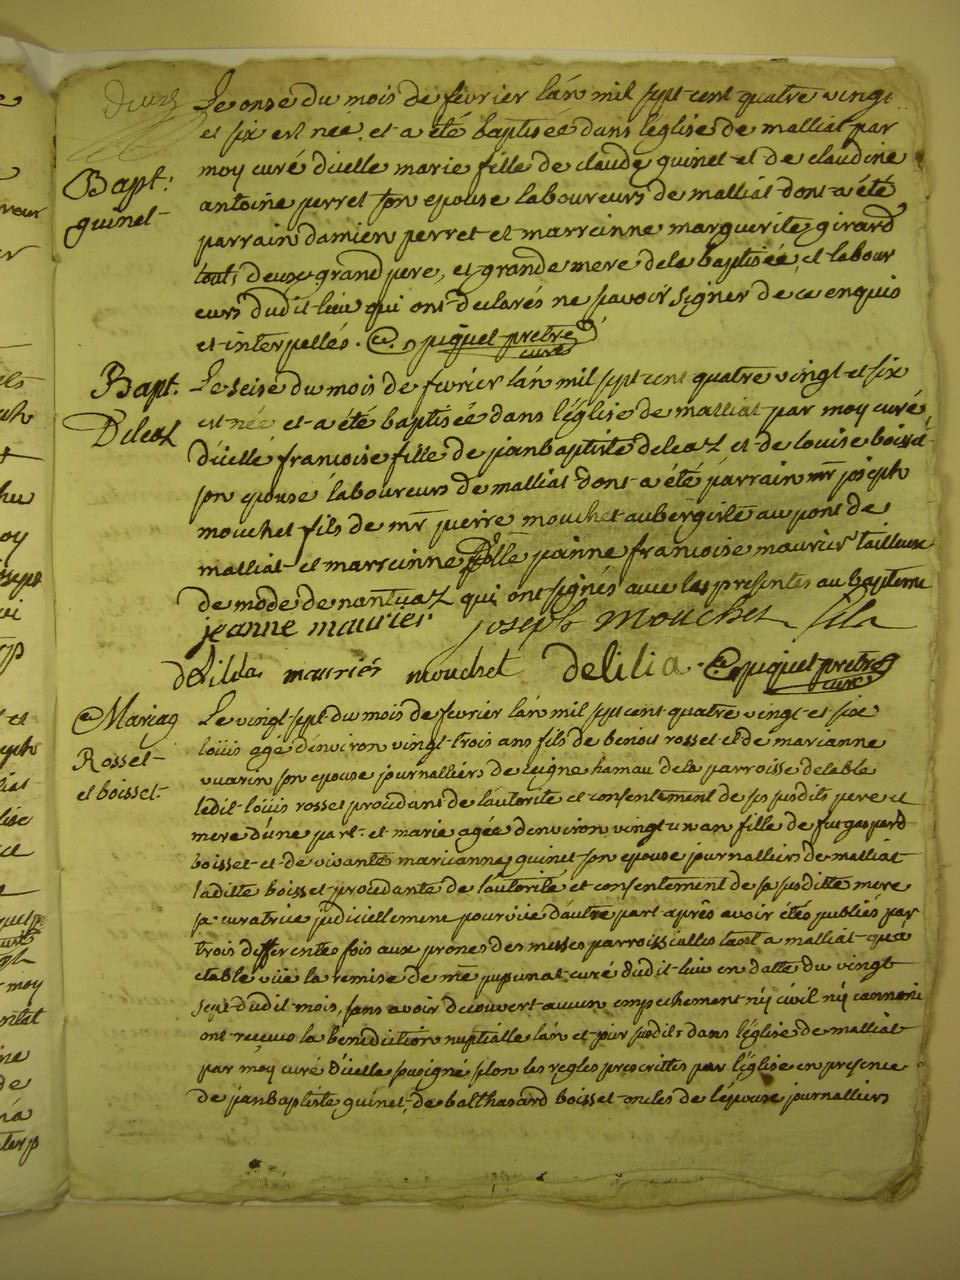 Bapt:
guinet
Le onse du mois de fevrier l'an mil sept cent quatre vingt
et six est née et a été baptisée dans l'église de malliat par
moy curé d'icelle marie fille de claude guinet et de claudine
antoine perret son epouse laboureurs de malliat dont a été
parrain damien perret et marrainne marguerite girard
touts deux grand pere, et grande mere de la baptisée, et labour
eurs dudit lieu qui ont declarés ne savoir signer de ce enquis
et interpellés. puquet pretre
curé
Bapt.
Deleaz
Le seise du mois de fevrier l'an mil sept cent quatre vingt et six
est née et a été baptisée dans l'église de malliat par moy curé
d'icelle francoise fille de jeanbaptiste deleaz et de louise boisset
son epouse laboureurs de malliat dont a été parrain mr joseph
mouchet fils de mr pierre mouchet aubergiste au pont de
malliat et marrainne jeanne francoise maurier tailleuse
de mode de nantuaz qui ont signés avec les presentes au bapteme
jeanne maurier joseph mouchet fils
maurier mouchet delilia puquet pretre
curé
Mariag
Rosset
et boisset
Le vingt sept du mois de fevrier l'an mil sept cent quatre vingt et six
loüis agé d'environ vingt trois ans fils de benoit rosset et de marianne
vuarin son epouse journalliers de leigne hamau de la parroisse
ledit loüis rosset procedant de l'autorité et consentement de ses susdits pere et
mere d'une part et marie agée d'environ vingt un an fille de fut gaspard
boisset et de vivante marianne guinet son epouse journalliers de malliat
laditte boisset procedante de l'autorité et consentement de sa susditte mere
sa curatrice d'autre part aprês avoir étés publiés par
trois differentes fois aux prones des messes parroissialles tant a malliat qu'a
etable vüe la remise de me curé dudit lieu en datte du vingt
sept dudit mois, sans avoir decouvert aucun empechement ny civil ny cannonique
ont reçeus la benediction nuptialle l'an et jour susdits dans l'église de malliat
par moy curé d'icelle sousigné selon les regles prescrittes par l'église en presence
de jeanbaptiste guinet, de balthasard boisset oncles de l'epouse journalliers